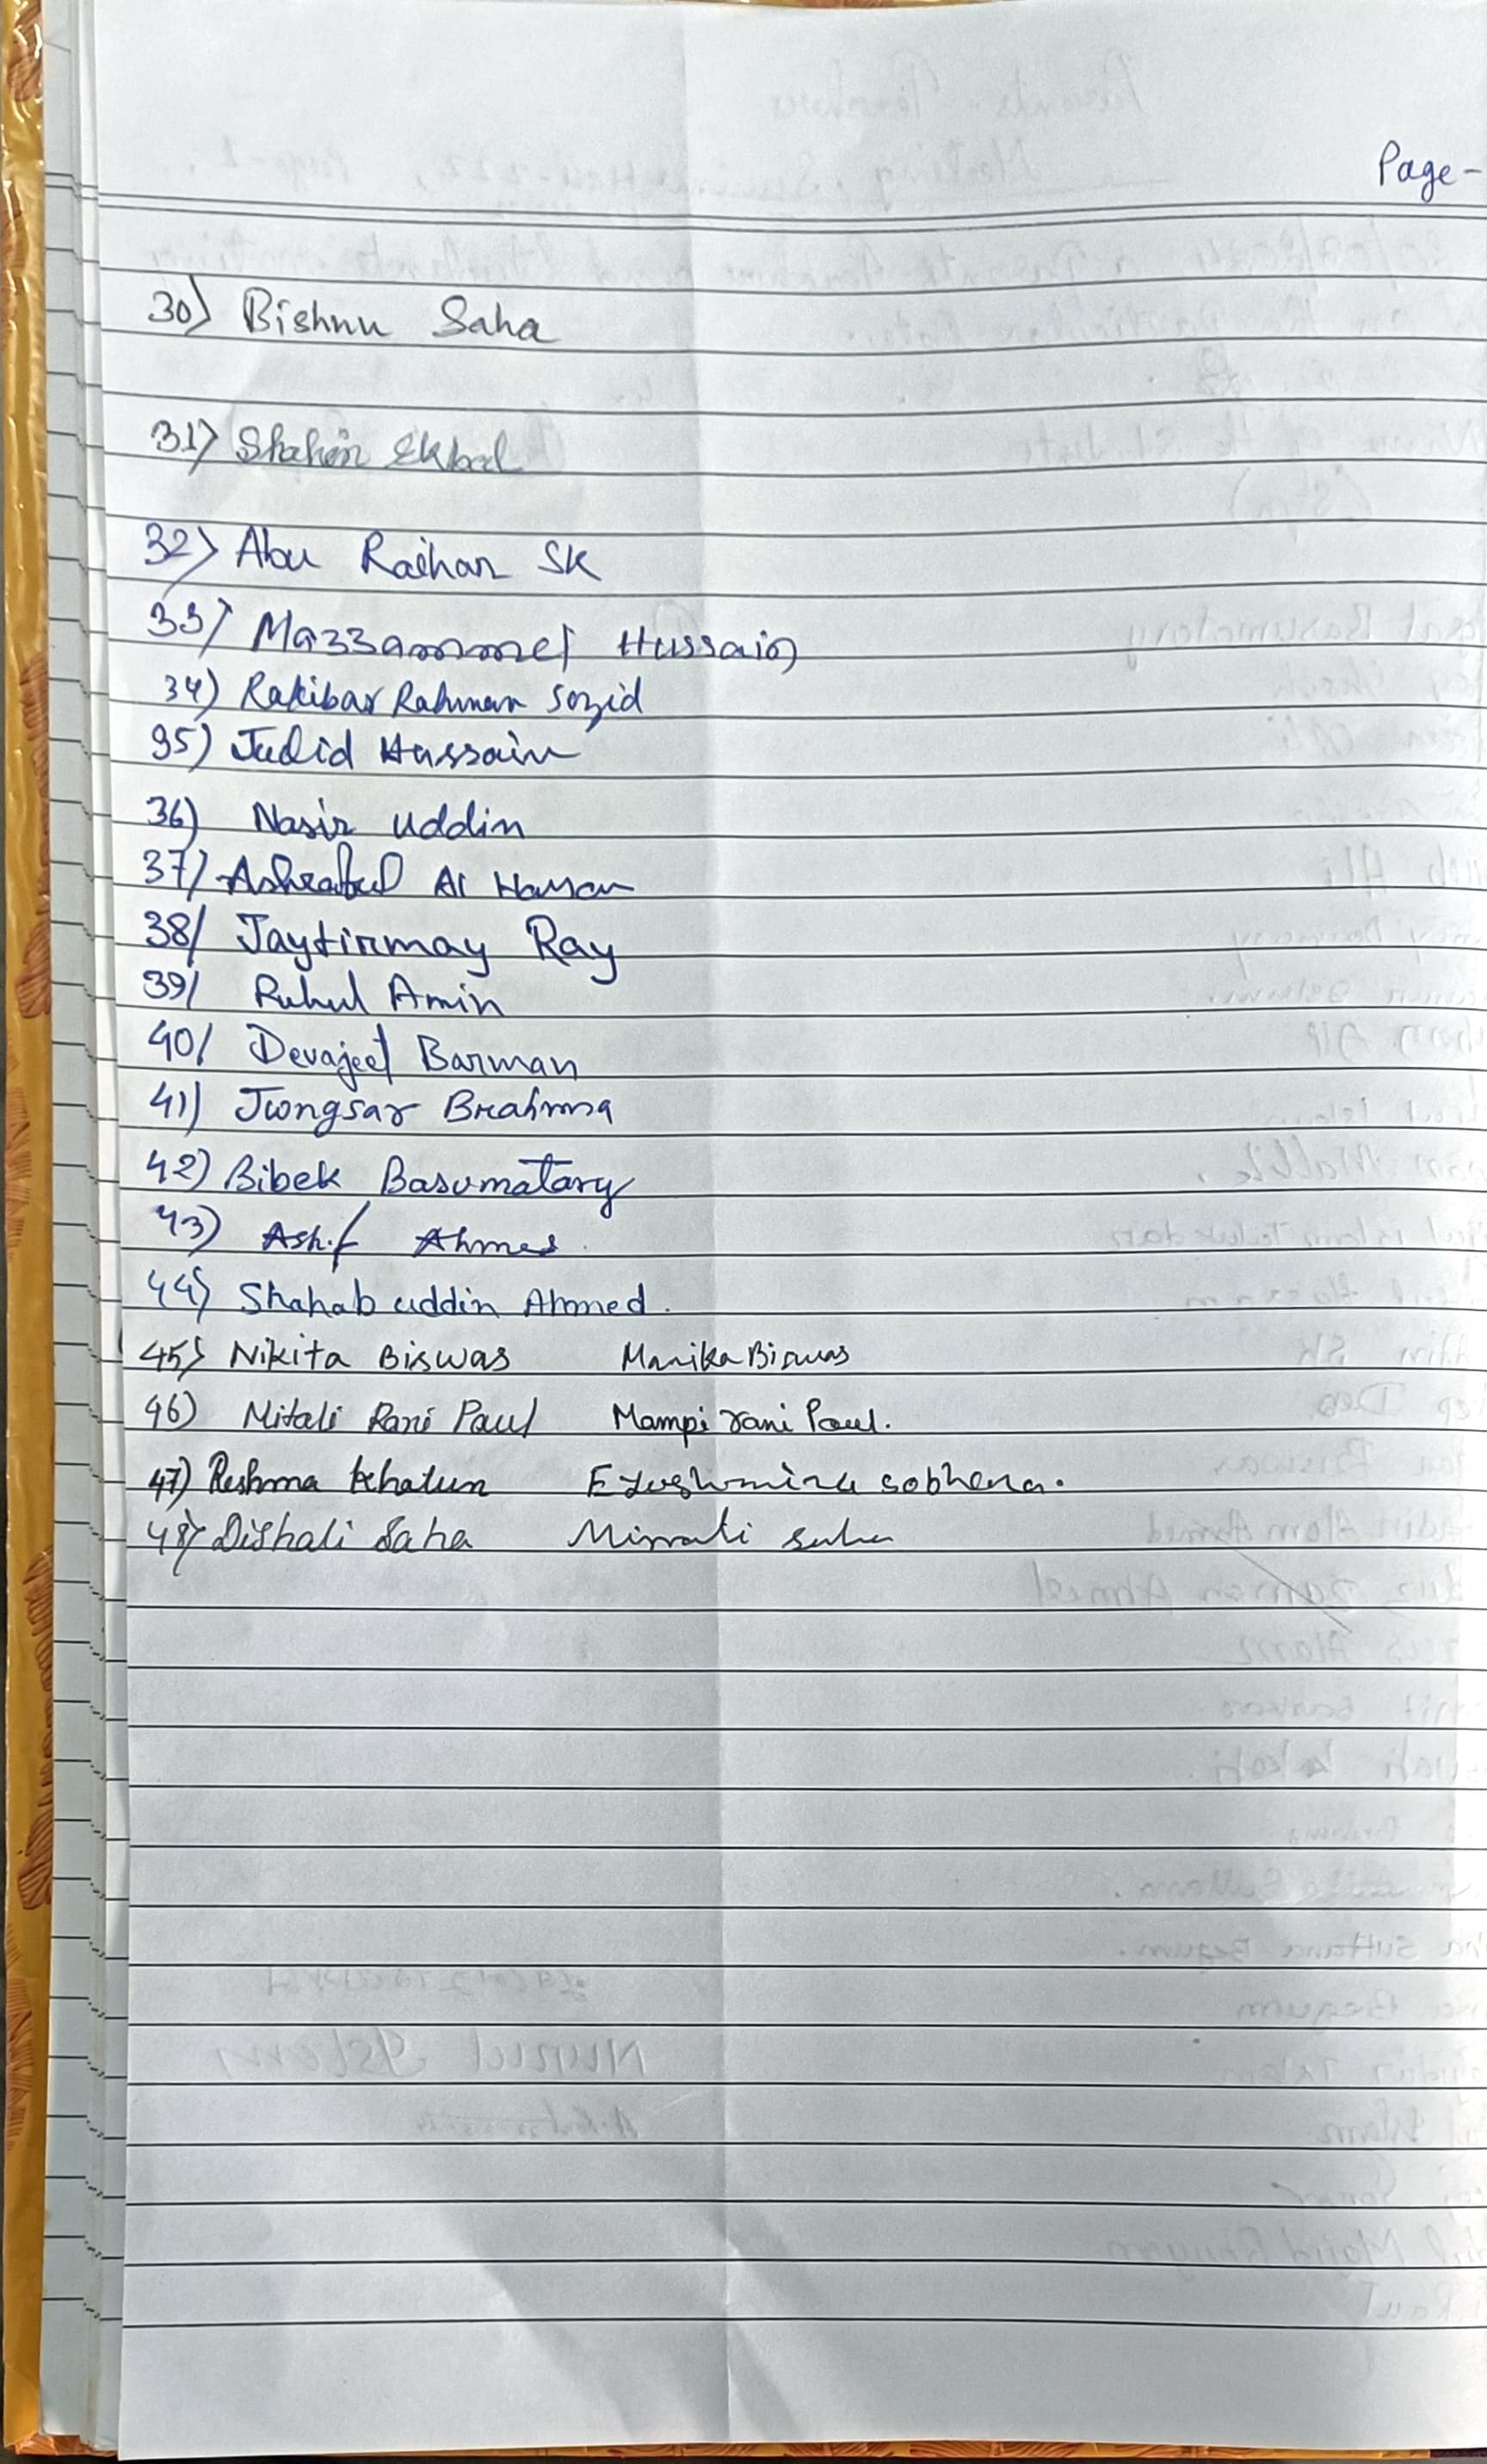 Page-
30) Bishnu Saha
31) Shahin Ekbal
32) Abu Raihan SK
33) Mazzammel Hussain
34) Rakibar Rahman Sozid
35) Judid Hussain
36) Nasir uddin
37) Ashraful Al Hassan
38) Jaytirmay Ray
39) Ruhul Amin
40) Devajeet Barman
41) Jwngsar Brahma
42) Bibek Basumatary
43) Ashif Ahmed
44) Shahab uddin Ahmed.
45) Nikita Biswas Manika Biswas
46) Mitali Rani Paul Mampi rani Paul.
47) Reshma khatun sobhena.
48) Dishali Saha Minati saha